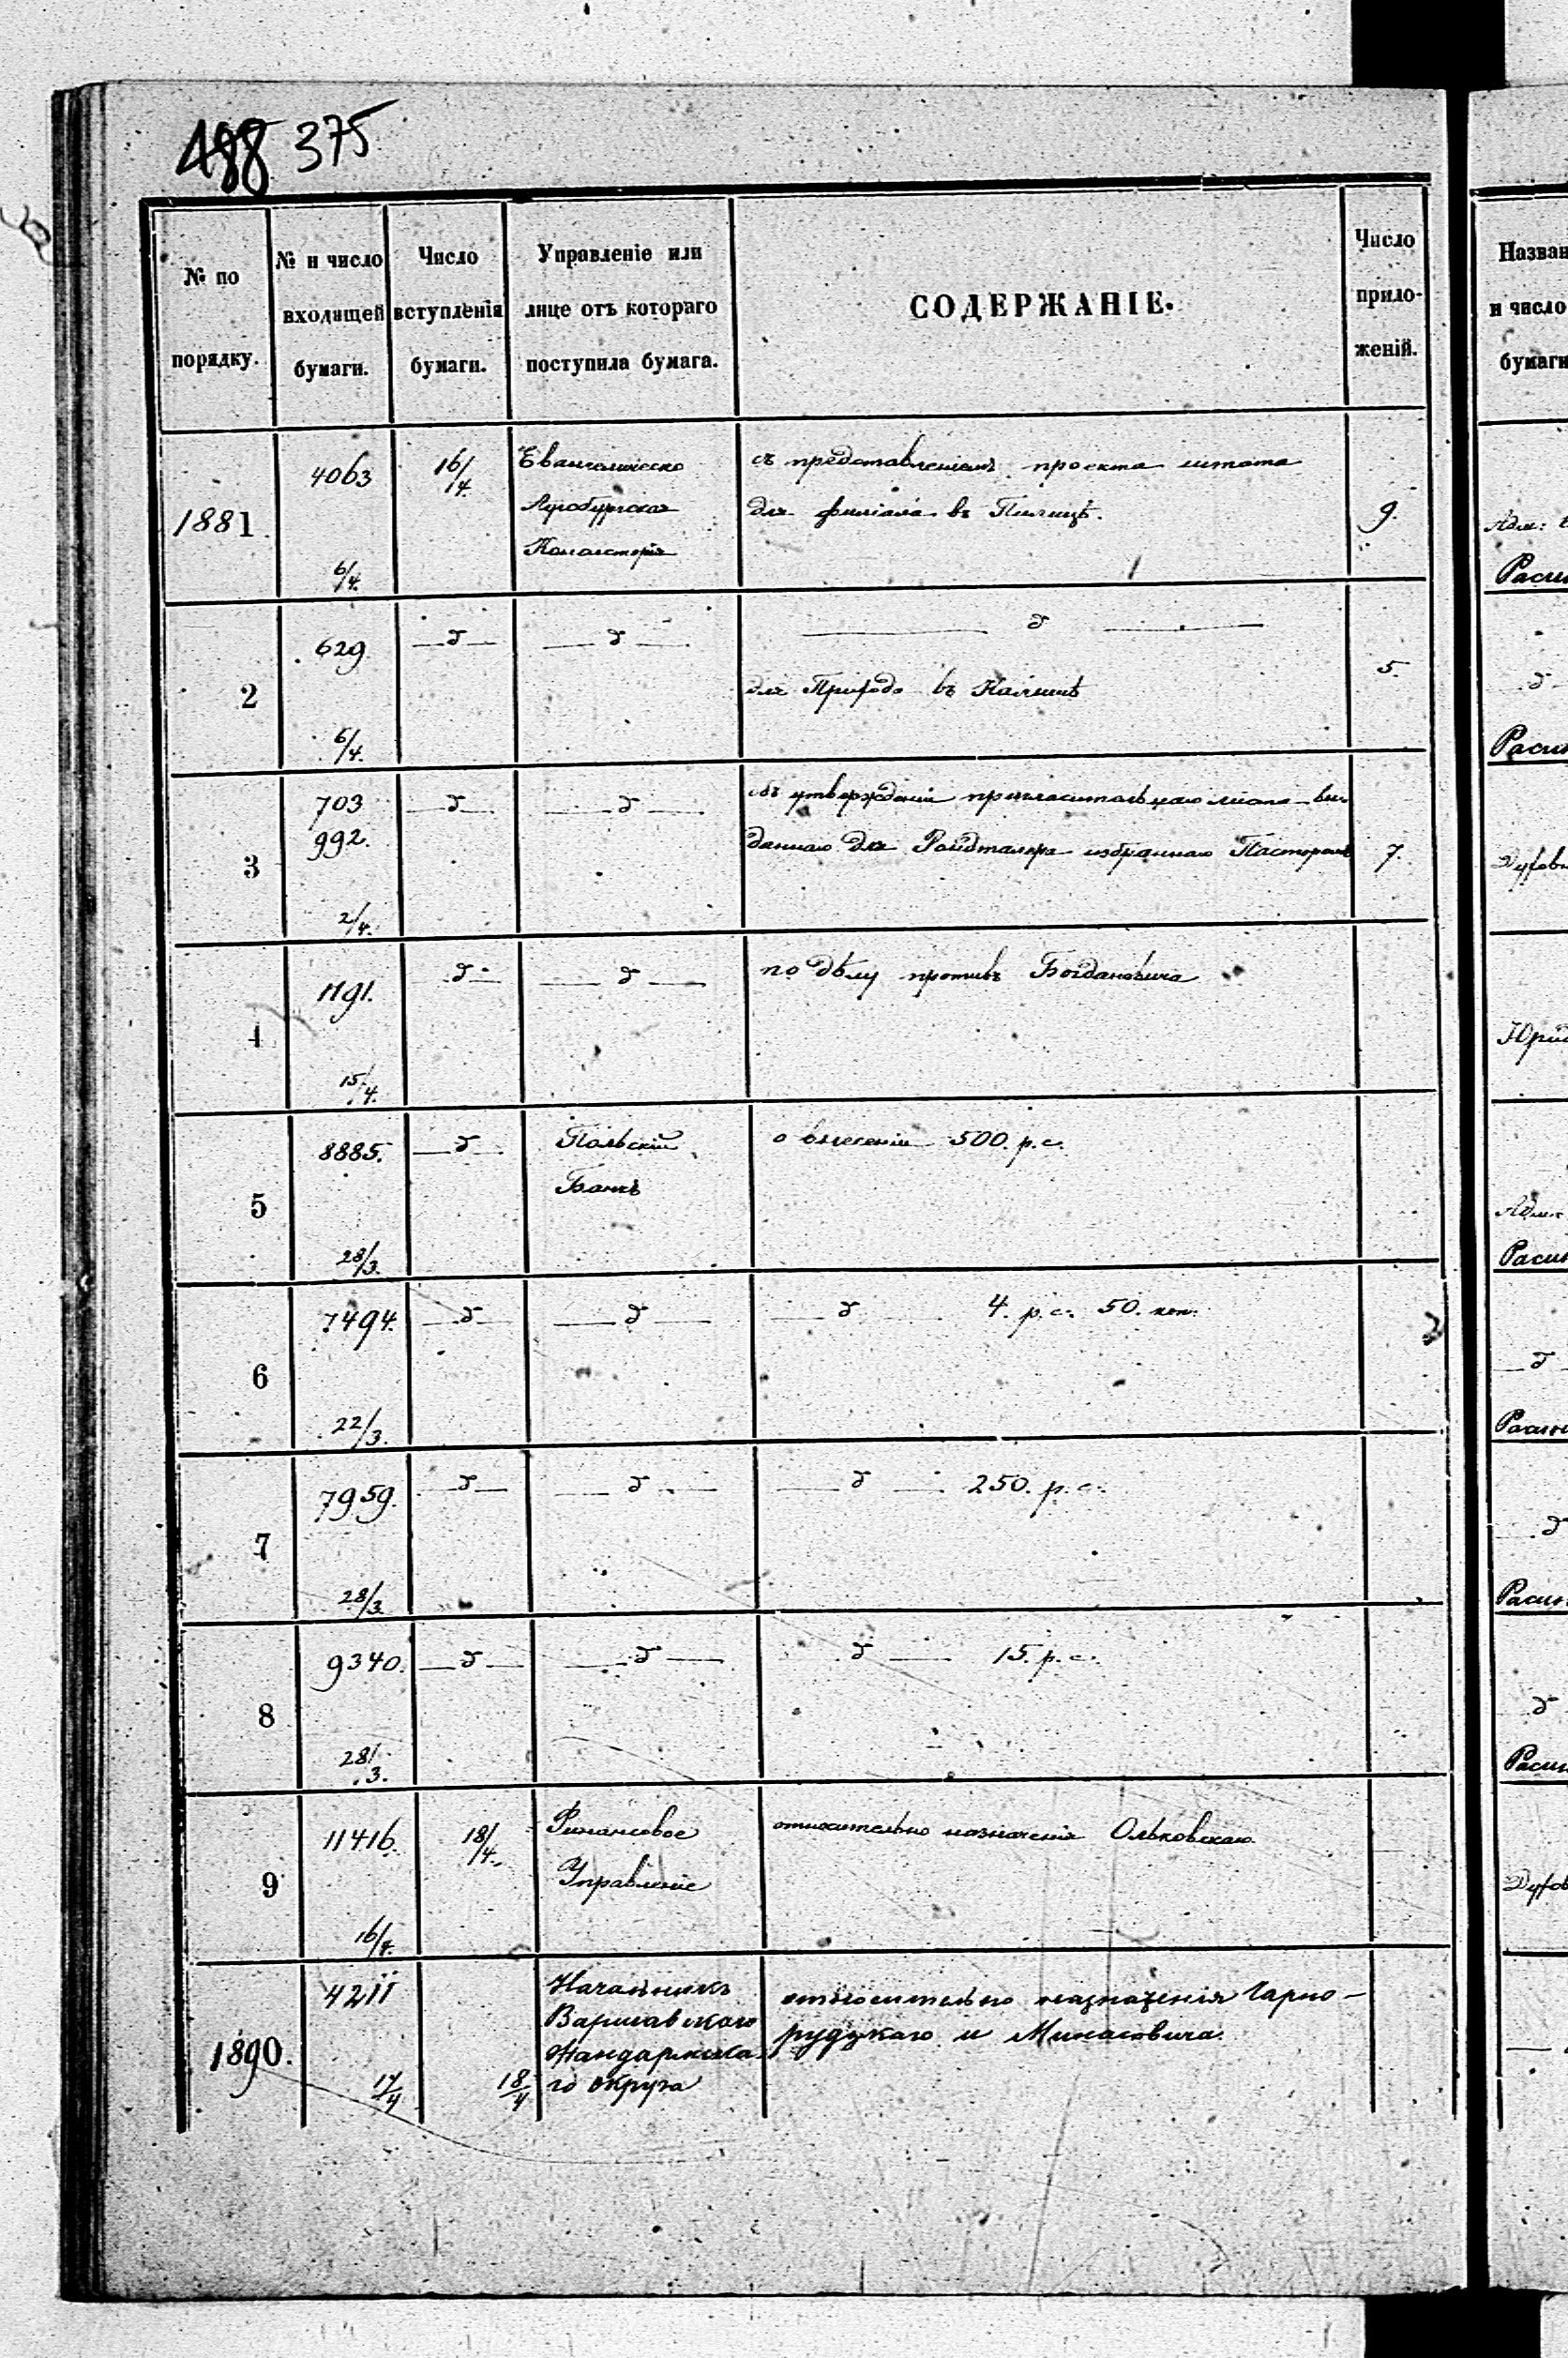 488 375
№ по порядку.
№ и число входящей бумаги.
Число вступленія бумаги.
Управленіе или лице отъ котораго поступила бумага.
СОДЕРЖАНІЕ.
Число прило-женій.
1881.
4063
6/4.
16/4.
Евангелическо
Аугсбургская
Консисторія
съ представленіемъ проекта штата
для филіала въ Пилицѣ.
9.
2
629
6/4.
д
д
д
для Прихода въ Калишѣ
5.
3
703
992.
2/4.
д
д
объ утвержденіи пригласительнаго листа вы-
даннаго для избраннаго Пасторомъ
7.
4
1191.
15/4.
д
д
по дѣлу противъ Богдановича
5
8885.
28/3.
д
Польскій
Банкъ
о внесеніи 500. р. с.
6
7494.
22/3.
д
д
д 4. р. с. 50. коп.
7
7959.
28/3.
д
д
д 250. р. с.
8
9340.
28/3.
д
д
д 15. р. с.
9
11416.
16/4.
18/4.
Финансовое
Управленіе
относительно назначенія Ольковскаго
1890.
4211
17/4
18/4
Начальникъ
Варшавскаго
Жандармска
го округа
относительно назначенія Чарно-
руцкаго и Минасовича.
Назван
и число
бумаги
Адм:
Расп
д
Расп
Духовн
Юрид
Адм.
Расп
д
Расп
д
Расп
д
Расп
Духов